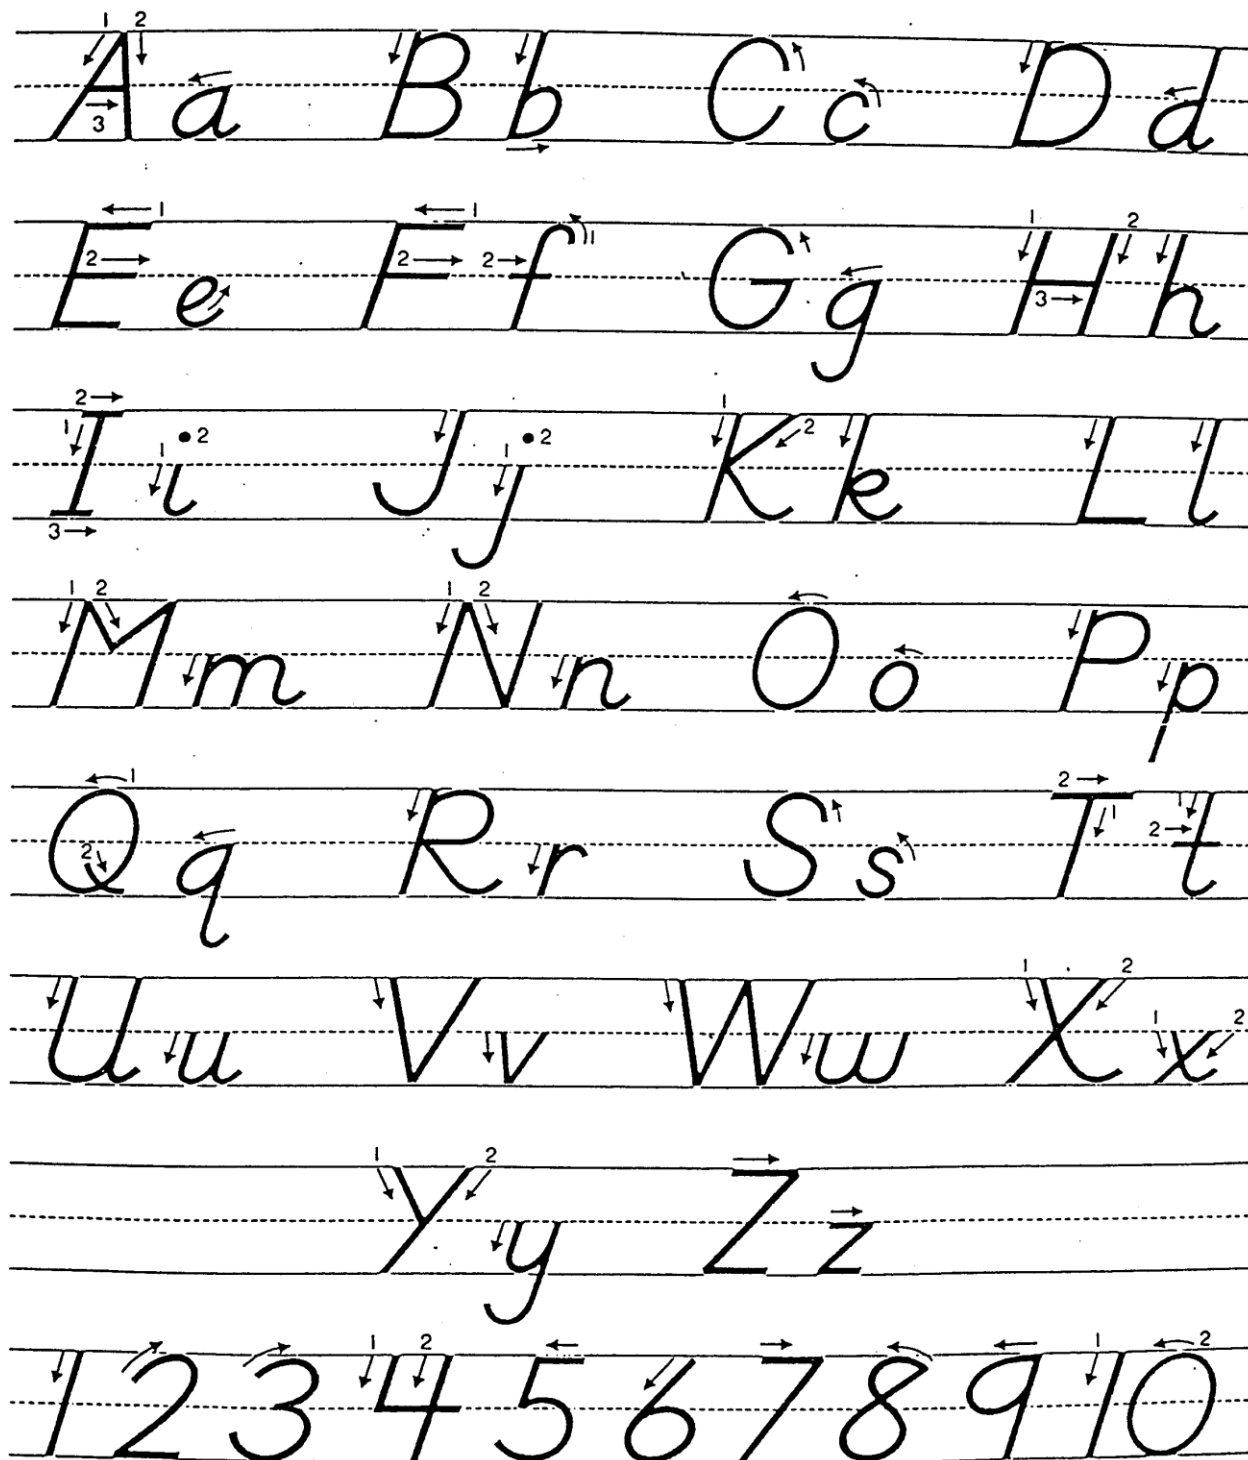 A a B b C c D d
E e F f G g H h
I i J j K k L l
M m N n O o P p
Q q R r S s T t
U u V v W w X x
Y y Z z
1 2 3 4 5 6 7 8 9 10